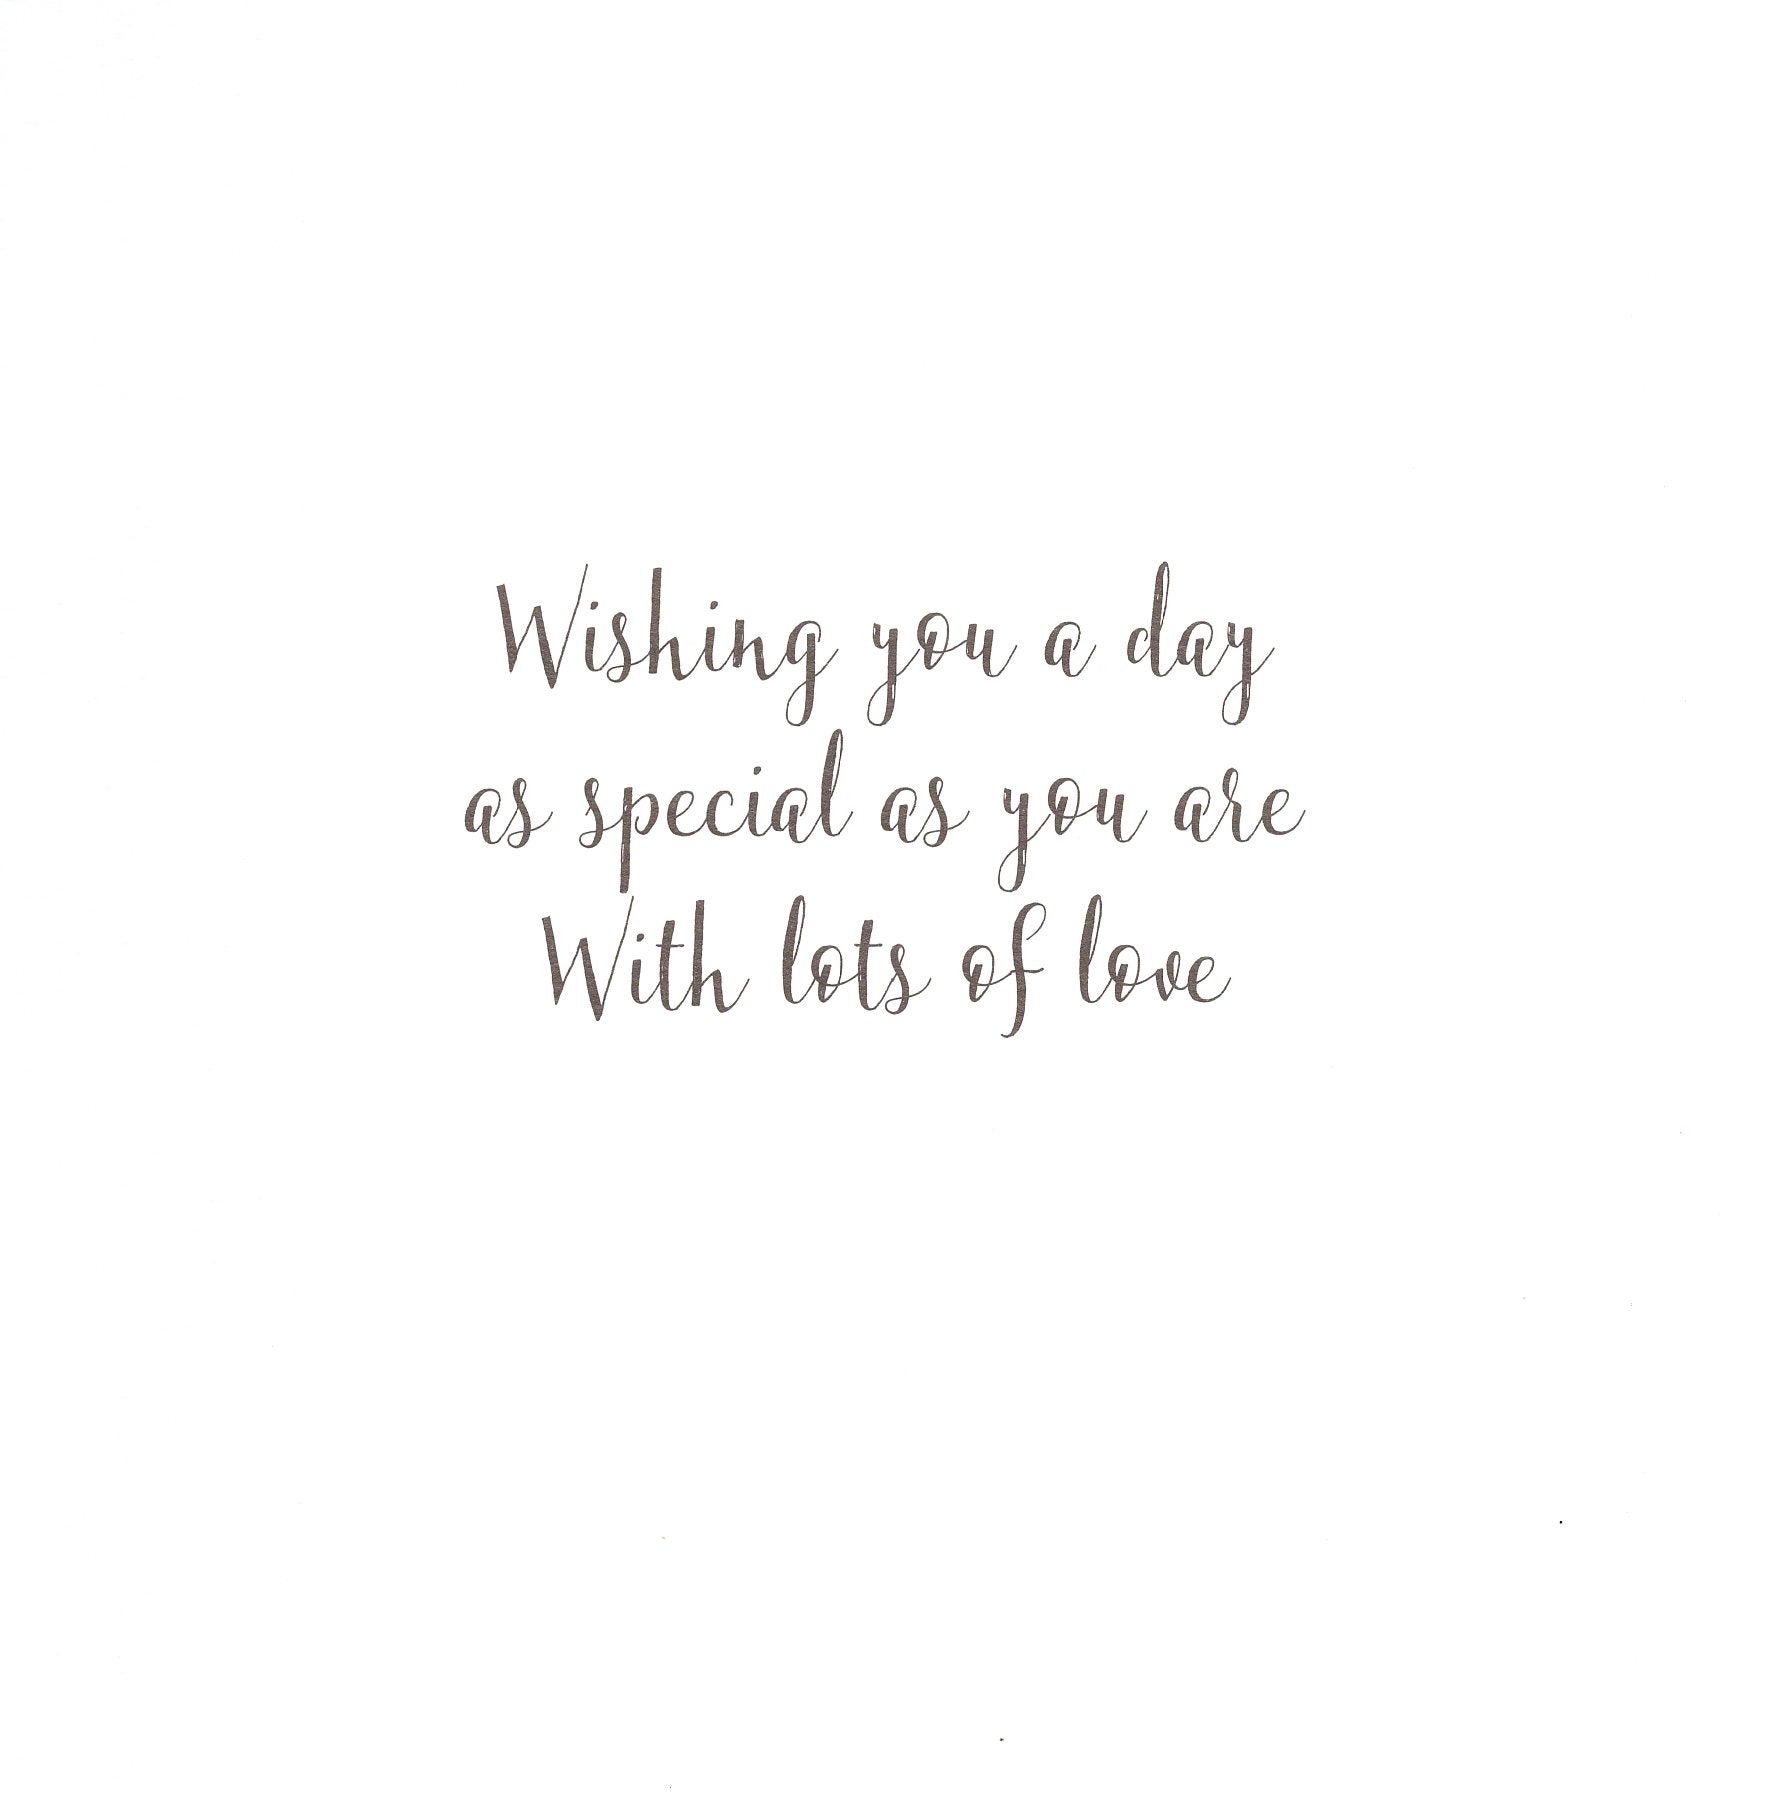 Wishing you a day
as special as you are
With lots of love